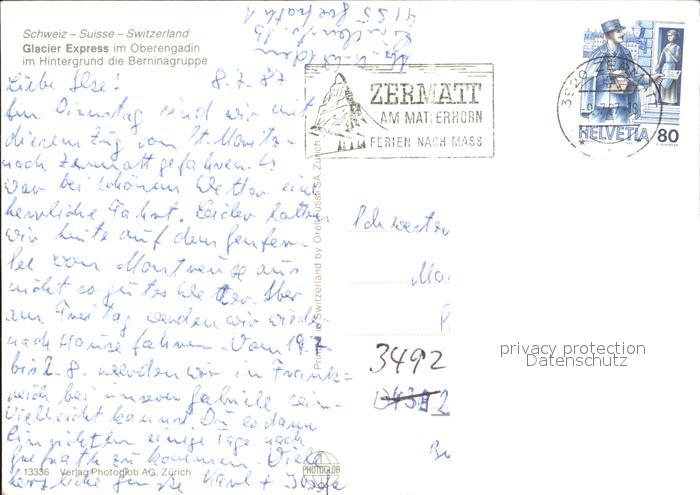 Schweiz – Suisse – Switzerland
Glacier Express im Oberengadin
im Hintergrund die Berninagruppe
4155 Grefrath 1
Liebe Ilse! 8.7.87
Am Dienstag sind wir mit
diesem Zug von St. Moritz-
nach Zermatt gefahren. Es
war bei schönem Wetter eine
herrliche Fahrt. Leider hatten
wir heute auf dem Genfer-
See von Montreux aus
nicht so gutes Wetter. Aber
am Freitag werden wir wieder
nach Hause fahren. Vom 19.7-
bis 2.8. werden wir in Frank=
reich bei unserer Gabriele sein.
Vielleicht kannst Du es dann
einrichten einige Tage nach
Grefrath zu kommen. Viele
herzliche Grüße Karl + Josefa
13336 Verlag Photoglob AG, Zürich
PHOTOGLOB
Printed in Switzerland by Orell Füssli SA, Zürich
ZERMATT
AM MATTERHORN
FERIEN NACH MASS
3920 ZERMATT
HELVETIA 80
Schwester
Ma
P
3492
Bu
privacy protection
Datenschutz